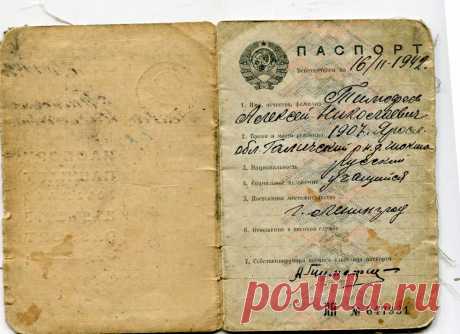 ПАСПОРТ
Действителен по 16/II-1942г.
1. Имя, отчество, фамилия Тимофеев
Алексей Николаевич
2. Время и место рождения 1907. Яросл.
обл. Галичский р-н д.
3. Национальность Русский
4. Социальное положение учащийся
5. Постоянное местожительство
г. Ленинград
6. Отношение к военной службе
7. Собственноручная подпись владельца паспорта
№
postila.ru